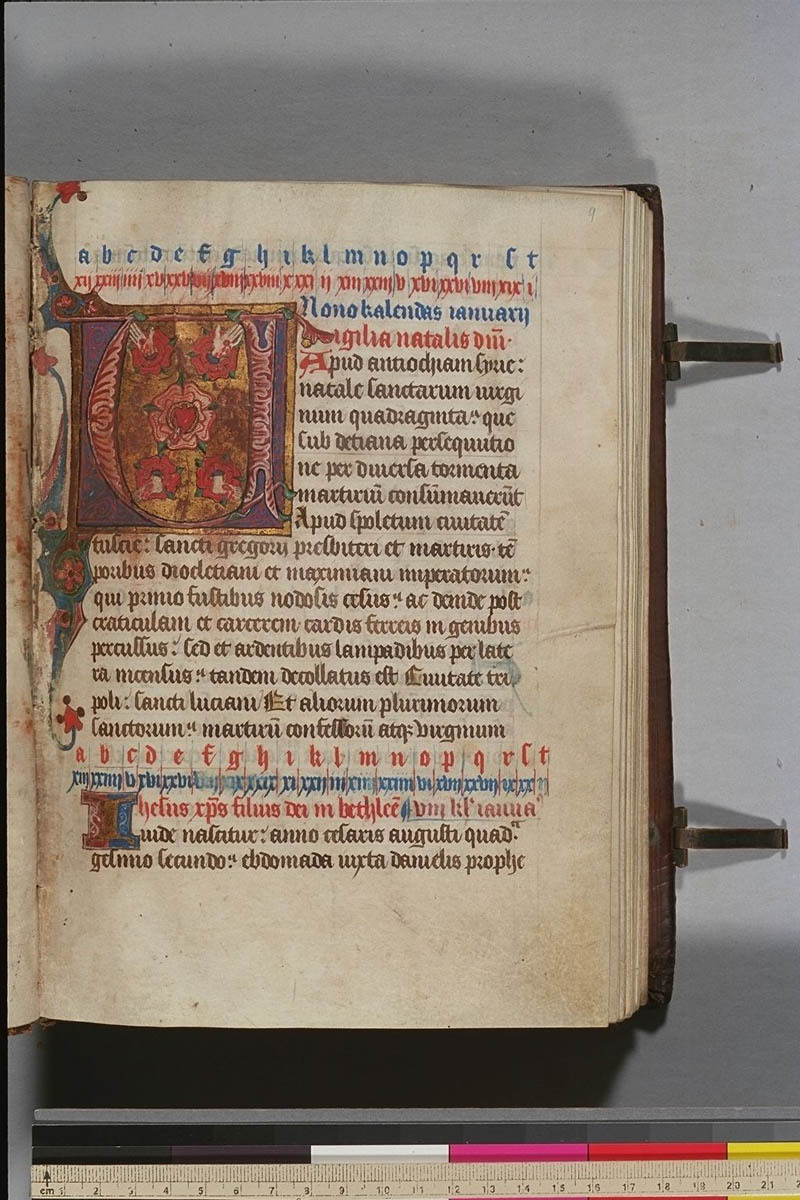 9
a b c d e f g h i k l m n o p q r s t
Nono kalendas ianuarij
Vigilia natalis dnī·
Apud antiochiam syrie:
natale sanctarum uirgi
num quadraginta: que
sub detiana persequutio
ne per diuersa tormenta
martiriū consūmauerūt
Apud spoletum ciuitatē
tuscie: sancti gregorij presbiteri et martiris· tē
poribus diocletiani et maximiani imperatorum:
qui primo fustibus nodosis cesus: ac deinde post
craticulam et carcerem cardis ferreis in genibus
percussus: sed et ardentibus lampadibus per late
ra incensus: tandem decollatus est Ciuitate tri
poli: sancti luciani Et aliorum plurimorum
sanctorum: martirū confessorū atqꝫ virginum
a b c d e f g h i k l m n o p q r s t
Ihesus xp̄s filius dei in bethleē viij kl' ianua
iude nascitur: anno cesaris augusti quadra
gesimo secundo: ebdomada iuxta danielis prophe
cm 1 2 3 4 5 6 7 8 9 10 11 12 13 14 15 16 17 18 19 20 21